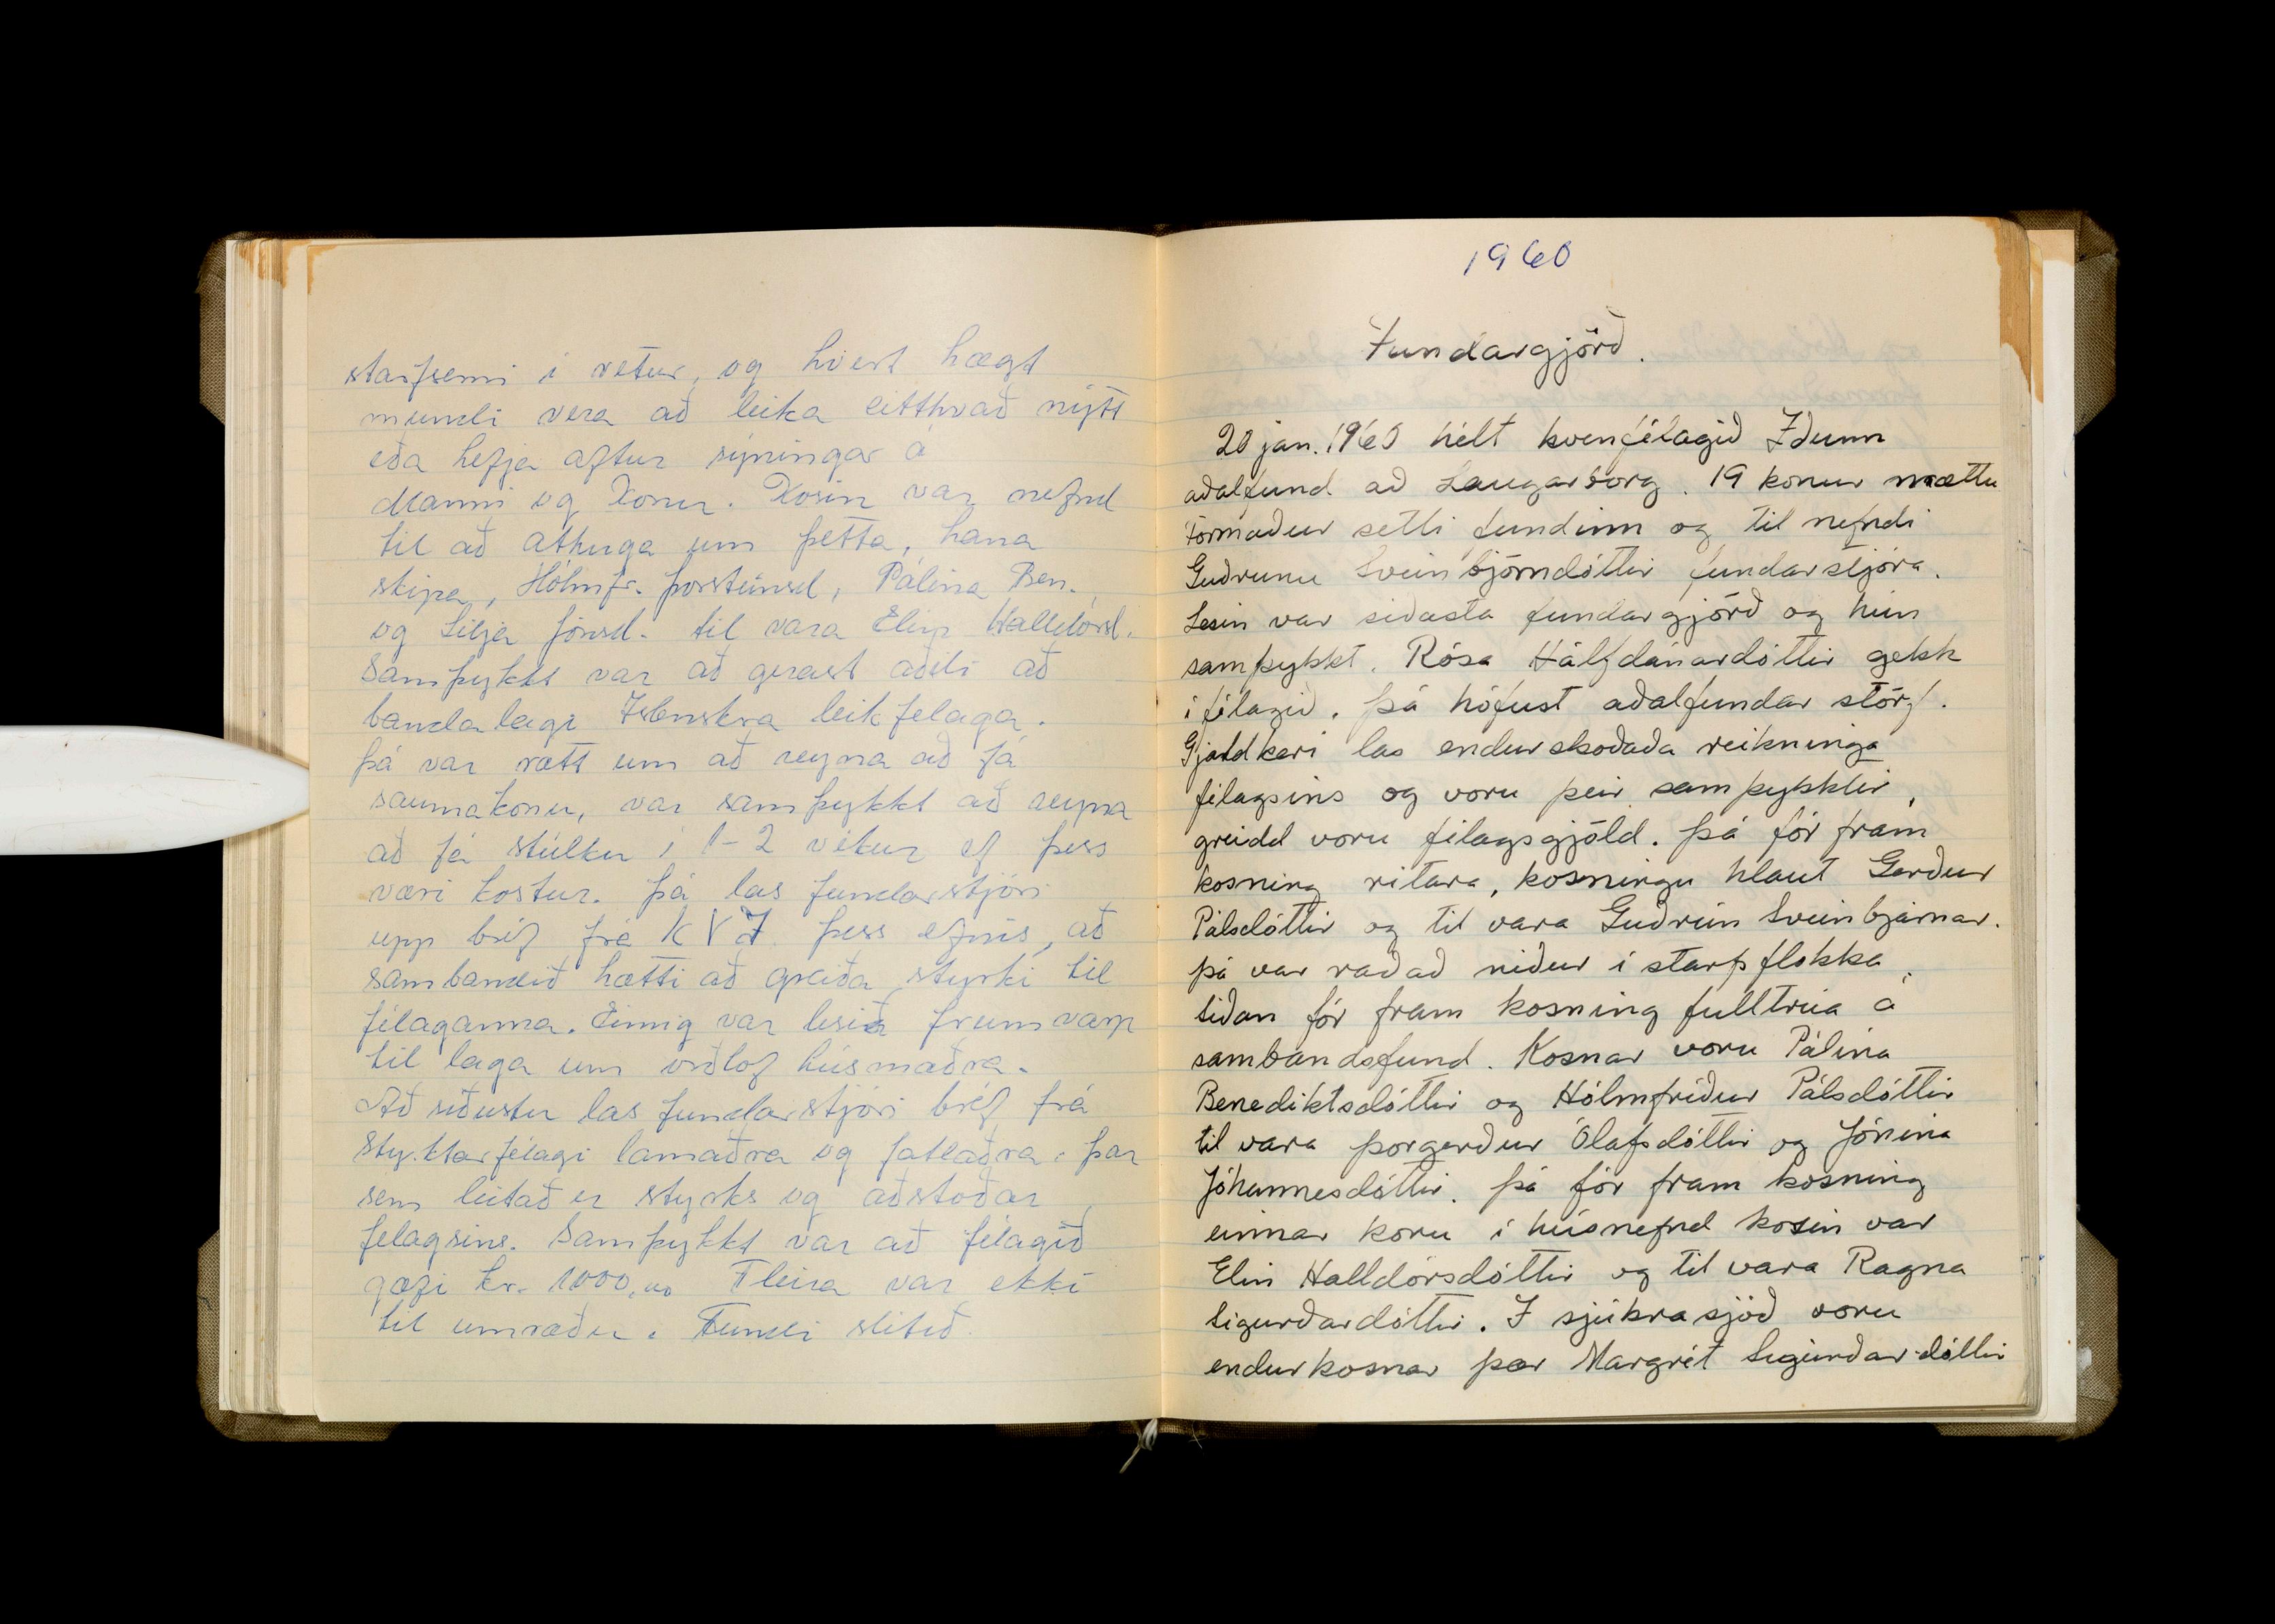 starfsemi í vetur, og hvert hægt
mundi vera að leika eitthvað nýtt
eða hefja aftur sýningar á
Manni og Konu. Kosin var nefnd
til að athuga um þetta, hana
skipa, Hólmfr. Þorsteinsd, Pálína Ben.,
og Lilja Jónsd. til vara Elín Halldórsd.
Samþykkt var að gerast aðili að
bandalagi Íslenskra leikfelaga.
Þá var rætt um að reyna að fá
saumakonu, var samþykkt að reyna
að fá stúlku í 1-2 vikur ef þess
væri kostur. Þá las fundarstjóri
upp bréf frá K V I þess efnis, að
sambandið hætti að greiða styrki til
félaganna. Einnig var lesið frumvarp
til laga um orðlof húsmæðra.
Að síðustu las fundarstjóri bréf frá
Styrktarfélagi lamaðra og fatlaðra. þar
sem leitað er styrks og aðstoðar
félagsins. Samþykkt var að félagið
gæfi kr. 1000,00 Fleira var ekki
til umræðu. Fundi slitið.
1960
Fundargjörð.
20 jan. 1960 hélt kvenfélagið Iðunn
aðalfund að Laugarborg. 19 konur mættu
Formaður setti fundinn og til nefndi
Guðrunu Sveinbjörndóttir fundarstjóra.
Lesin var síðasta fundargjörð og hún
samþykkt. Rósa Hálfdánardóttir gekk
í félagið. Þá hófust aðalfundar störf.
Gjaldkeri las endurskoðaða reikninga
félagsins og voru þeir samþykktir,
greidd voru félagsgjöld. Þá fór fram
kosning ritara, kosningu hlaut Gerður
Pálsdóttir og til vara Guðrún Sveinbjarnar.
Þá var raðað niður í starfsflokka.
Síðan fór fram kosning fulltrúa á
sambandsfund. Kosnar voru Pálína
Benediktsdóttir og Hólmfríður Pálsdóttir
til vara Þorgerður Ólafsdóttir og Jónína
Jóhannesdóttir. Þá fór fram kosning
einnar konu í húsnefnd kosin var
Elín Halldórsdóttir og til vara Ragna
Sigurðardóttir. I sjúkrasjóð voru
endurkosnar þær Margrét Sigurðardóttir